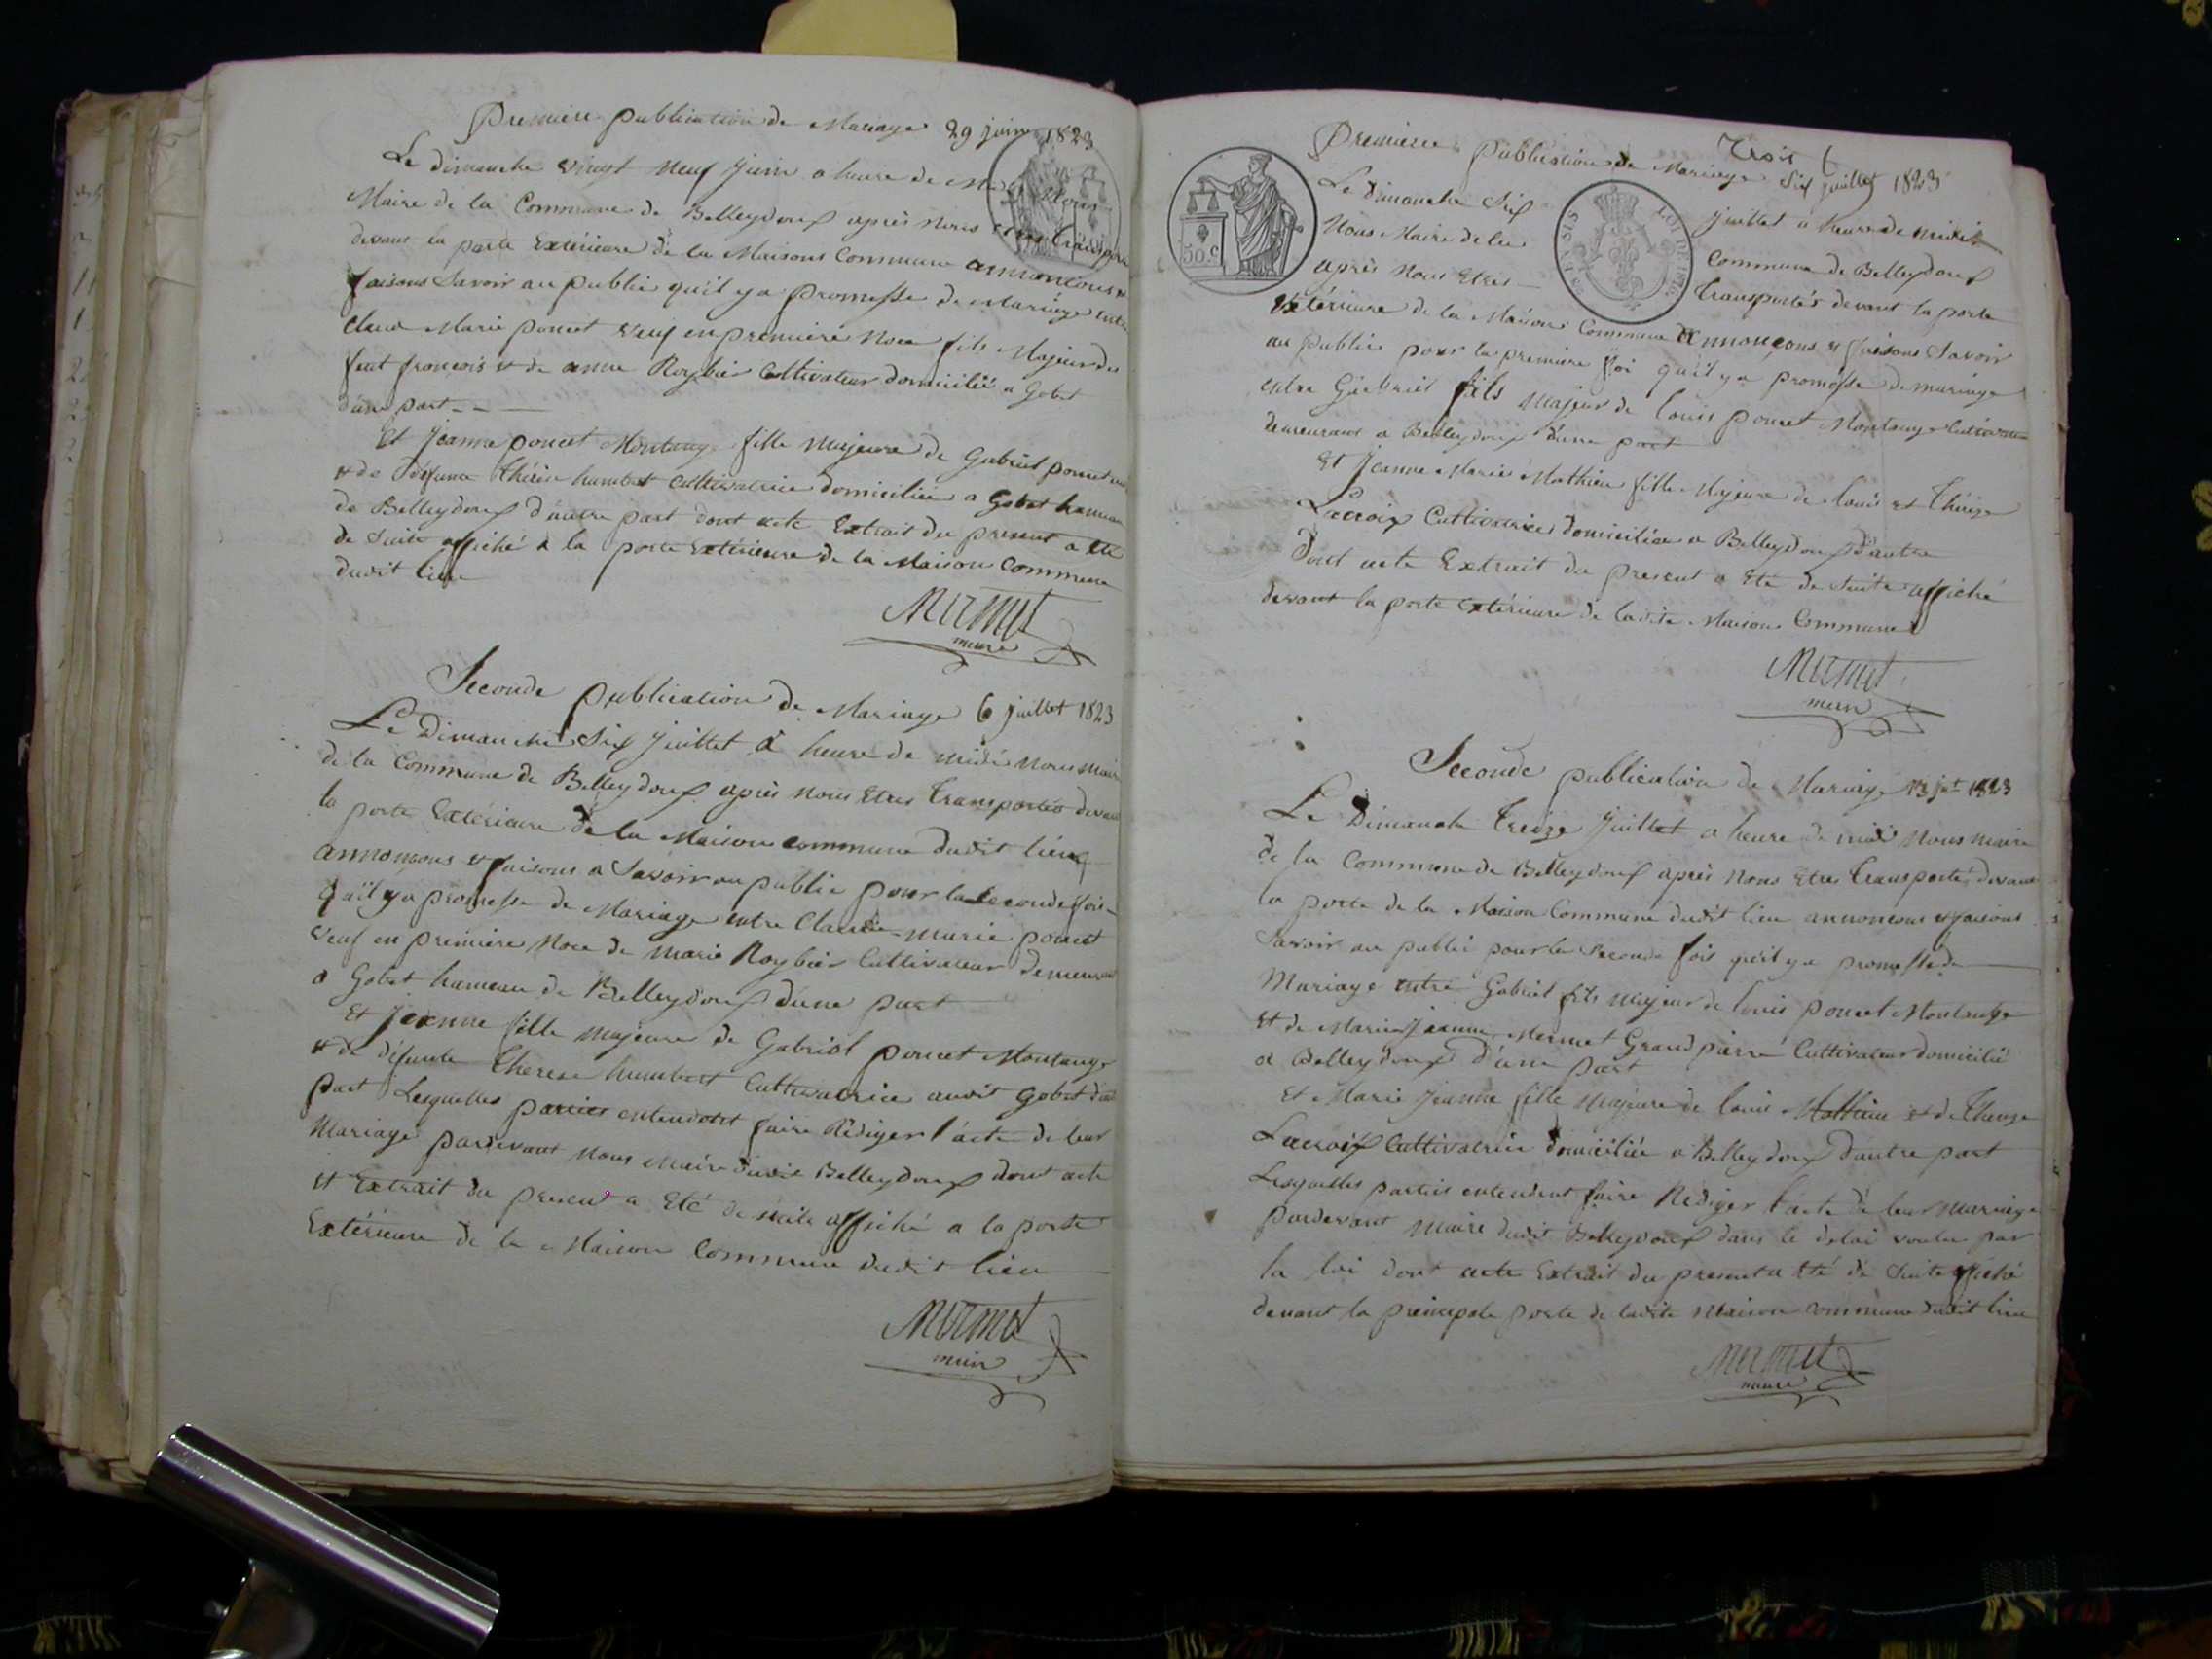 Premiere publication de Mariage 29 juin 1823
Le dimanche vingt neuf Juin a heure de midi Nous
Maire de la Commune de Belleydoux après nous etres transporté
devant la porte Extérieure de la Maison Commune annoncons et
faisons Savoir au public qu'il y a promesse de Mariage entre
Claude Marie poncet veuf en premiere Noce fils Majeur de
feut françois et de anne Roybier Cultivateur domicilié a Gobet
d'une part
Et Jeanne poncet Montange fille majeure de Gabriel poncet
et de défunte thérèse humbert cultivatrice domiciliée a Gobet hameau
de Belleydoux d'autre part dont acte Extrait du présent a été
de Suite affiché à la porte Extérieure de la Maison Commune
dudit lieu
Mermet
maire
Seconde publication de Mariage 6 juillet 1823
Le Dimanche Six Juillet à heure de midi nous maire
de la Commune de Belleydoux après nous Etres transportés devant
la porte Extérieure de la Maison commune dudit lieu
annonçons et faisons a Savoir au public pour la seconde fois
qu'il y a promesse de Mariage entre Claude marie poncet
veuf en premiere Noce de marie Roybier Cultivateur demeurant
a Gobet hameau de Belleydoux d'une part
Et Jeanne fille majeure de Gabriel poncet Montange
et de défunte therese humbert Cultivatrice audit Gobet d'autre
part Lesquelles parties entendent faire Rédiger l'acte de leur
Mariage pardevant Nous Maire dudit Belleydoux dont acte
et Extrait du présent a Eté de suite affiché a la porte
Extérieure de la Maison Commune dudit lieu
Mermet
maire
Trois 6
Premiere publication de Mariage Six juillet 1823
Le Dimanche Six Juillet a heure de midi
Nous Maire de la Commune de Belleydoux
après nous Etres transportés devant la porte
50.C
LOI DE 1816
Extérieure de la Maison Commune annonçons et faisons Savoir
au public pour la premiere foi qu'il y a promesse de mariage
entre Gabriel fils majeur de louis poncet Montange Cultivateur
demeurant a Belleydoux d'une part
Et Jeanne Marie Mathieu fille Majeure de louis et thérèze
Lacroix Cultivatrice domiciliée a Belleydoux d'autre
Dont acte Extrait du présent a Eté de Suite affiché
devant la porte extérieure de ladite Maison Commune
Mermet
maire
Seconde publication de Mariage 13 jet 1823
Le Dimanche treize Juillet a heure de midi Nous maire
de la Commune de Belleydoux après Nous Etres transportés devant
la porte de la Maison Commune dudit lieu annoncons et faisons
Savoir au public pour la Seconde fois qu'il y a promesse de
Mariage entre Gabriel fils majeur de louis poncet Montange
Et de Marie Jeanne Mermet Grand pierre Cultivateur domicilié
a Belleydoux d'une part
Et Marie Jeanne fille majeure de louis Mathieu et de thereze
Lacroix Cultivatrice domiciliée a Belleydoux d'autre part
Lesquelles parties entendent faire Rédiger l'acte de leur mariage
pardevant Maire dudit Belleydoux dans le delai voulu par
la loi dont acte Extrait du present a été de Suite affiché
devant la principale porte de ladite Maison commune dudit lieu
Mermet
maire